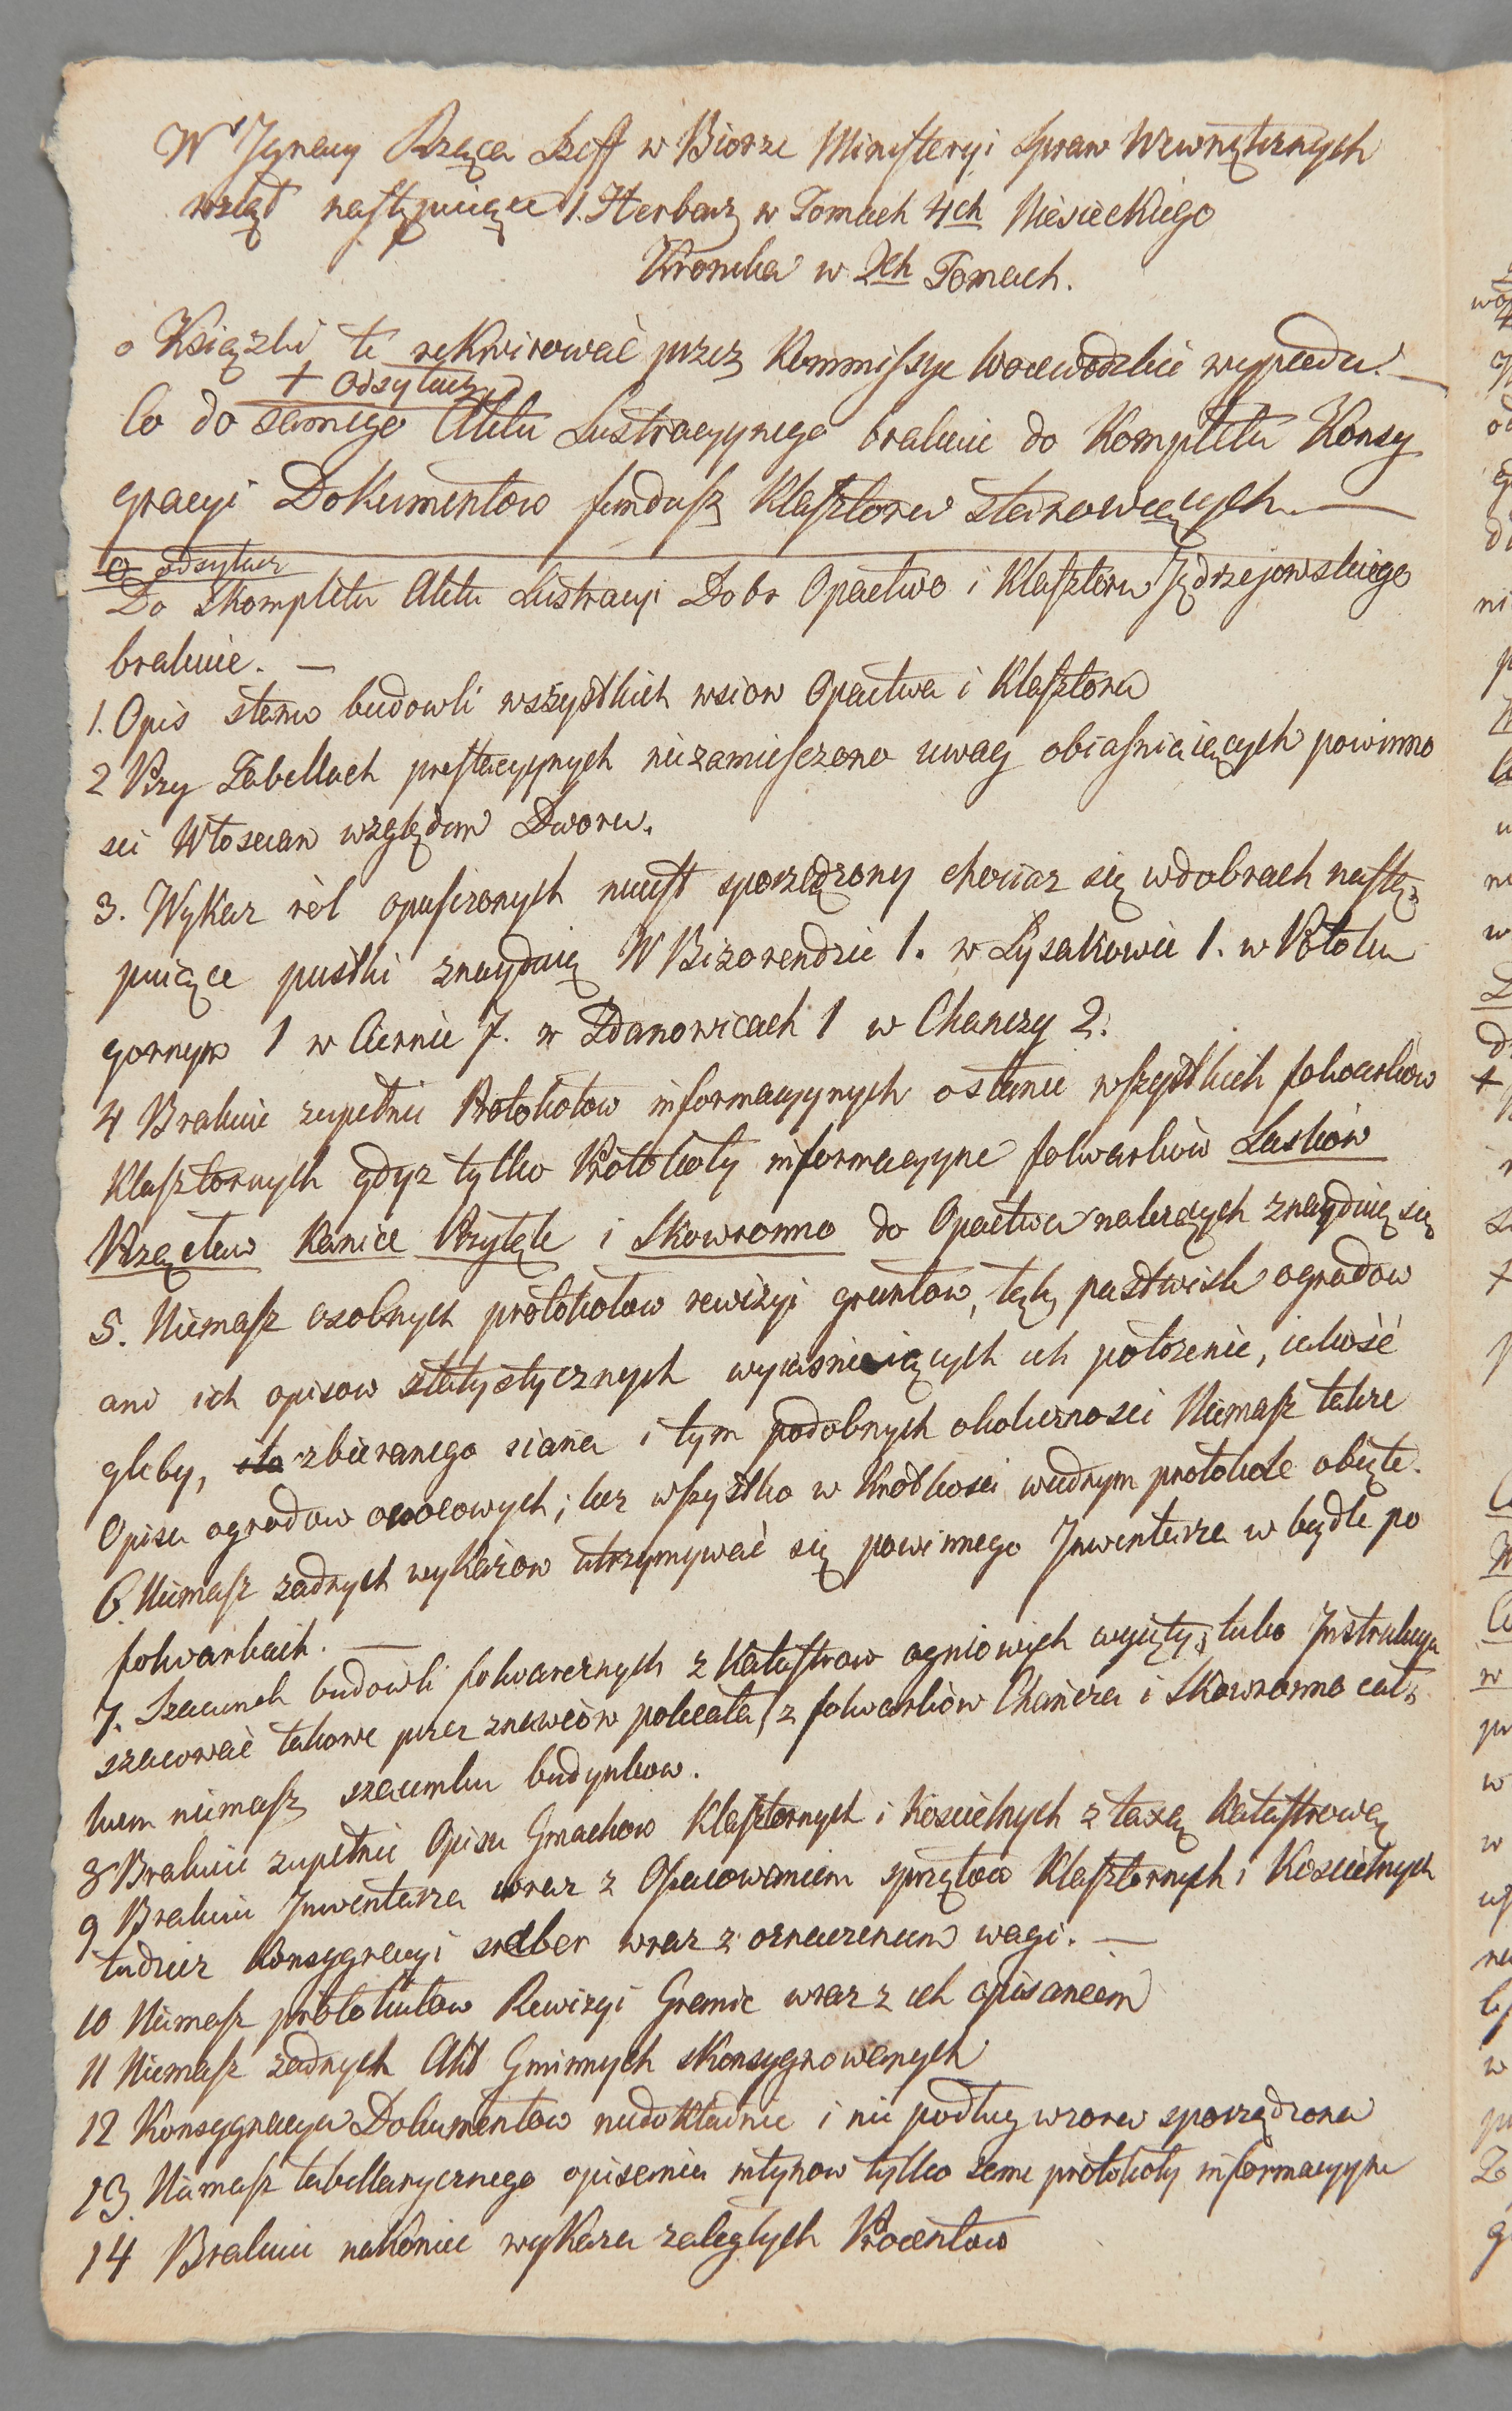 Wr Ignacy Rząca Szeff w Biorze Ministeryi Spraw Wewnętrznych
wziął następuiące 1. Herbarz w Tomach 4ch Niesieckiego
Kronika w 2ch Tomach.
o Książki te rekwirować przez Kommissye Woiewodzkie wypada. —
+ odsyłacz
Co do samego Aktu Lustracyynego brakuie do Kompletu Konsy
gnacyi Dokumentow fundusz Klasztoru stanowiących. —
o odsyłacz
Do skompletu Aktu Lustracyi Dobr Opactwa i Klasztoru Jędrzejowskiego
brakuie. —
1. Opis stanu budowli wszystkich wsiow Opactwa i Klasztora
2 Przy Tabellach prestacyynych niezamieszczono uwag obiaśniaiących powinno
sci Włoscian względem Dworu.
3. Wykaz ról opuszczonych nieiest sporządzony chociaz się w dobrach nastę-
puiące pustki znayduią W Bizorendzie 1. w Łysakowie 1. w Potoku
gornym 1 w Ciernie 7. w Zdanowicach 1 w Chanczy 2.
4 Brakuie zupełnie Protokołow informacyynych o stanie wszystkich folwarkow
Klasztornych gdyz tylko Protokoły informacyyne folwarków Laskow
Przęcław Kanice Przyłęk i Skowronno do Opactwa nalezących znayduią się
5. Niemasz osobnych protokołow rewizyi gruntow, łąk, pastwisk ogrodow
ani ich opisow statystycznych wyiasniaiących ich położenie, iakość
gleby, sta zbieranego siana i tym podobnych okolicznosci Niemasz takze
Opisu ogrodow owocowych; lecz wszystko w krotkosci w iednym protokole obięte.
6. Niemasz zadnych wykazow utrzymywać się powinnego Inwentarza w bydle po
folwarkach. —
7. Szacunek budowli folwarcznych z Katastrow ogniowych wyięty, lubo Instrukcya
szacować takowe przez znawców poleciła, z folwarków Chańcza i Skowronno cał-
kiem niemasz szacunku budynkow.
8 Brakuie zupełnie Opisu Gmachow Klasztornych i Koscielnych z taxą Katastrową
9 Brakuie Inwentarza wraz z Opacowaniem sprzętow Klasztornych i Koscielnych
tudziez Konsygnacyi sreber wraz z oznaczeniem wagi. —
10 Niemasz protokułow Rewizyi Granic wraz z ich opisaniem
11 Niemasz żadnych Akt Gminnych skonsygnowanych
12 Konsygnacya Dokumentow niedokładnie i nie podług wzoru sporządzona
13. Niemasz tabellarycznego opisania młynow tylko same protokoły informacyyne
14 Brakuie nakoniec wykazu zaległych Procentow